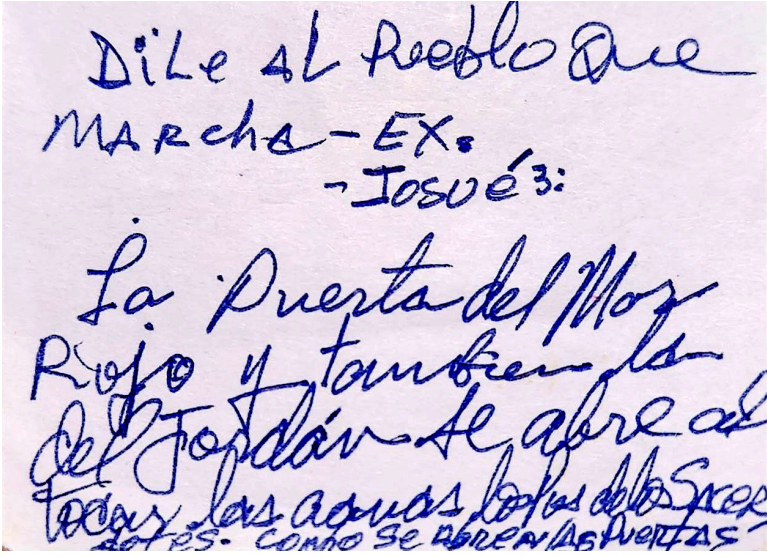 Dile al Pueblo Que
MARcha - EX.
- Josué 3:
La Puerta del Mar
Rojo y tambien la
del Jordán se abre al
tocar las aguas los de los Sacer
dotes. Como se abren las Puertas